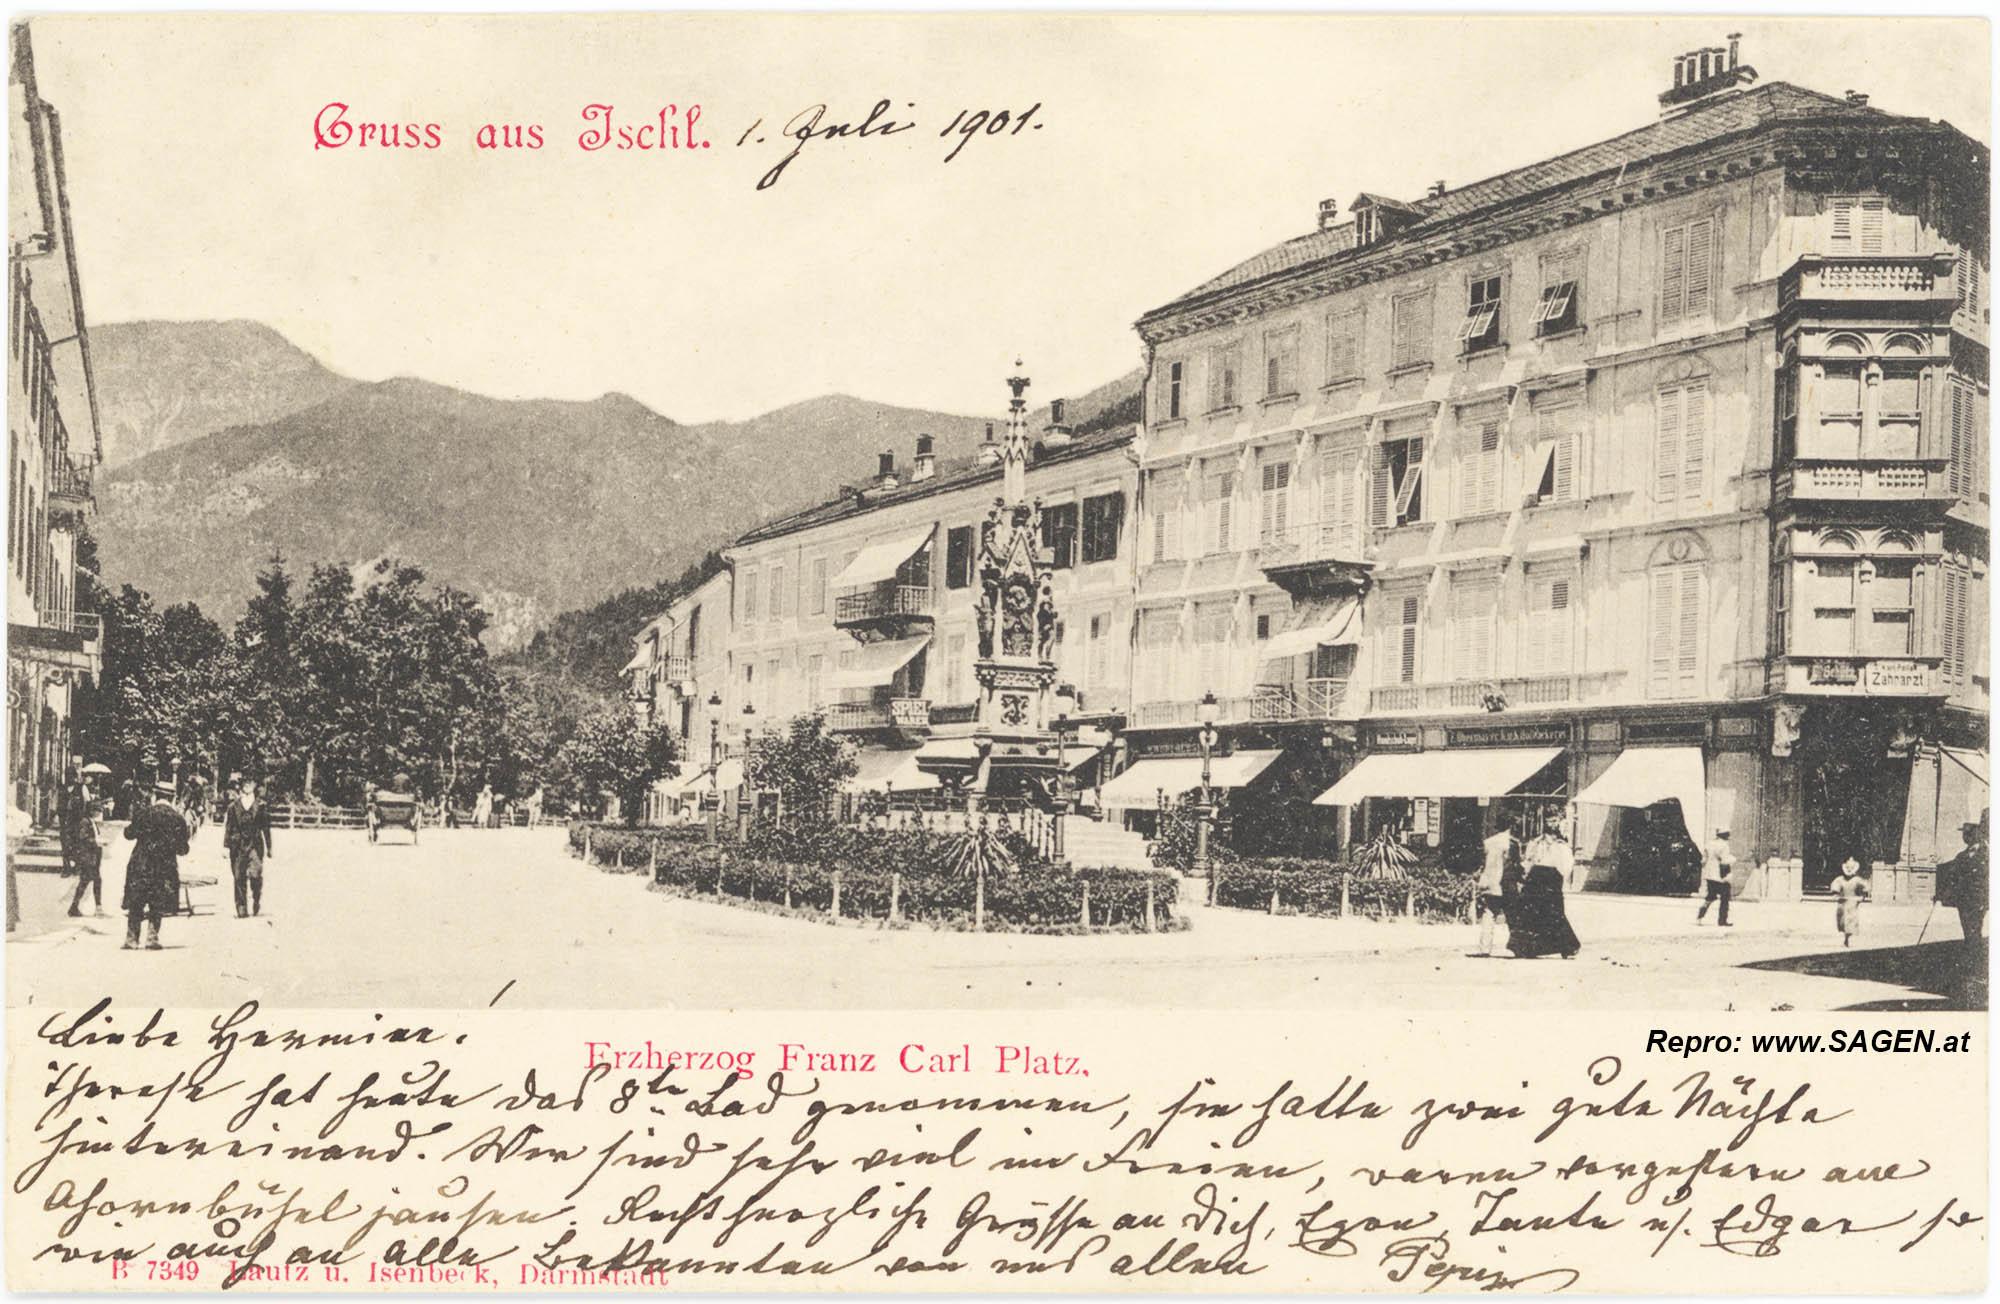 Gruss aus Ischl. 1. Juli 1901.
SPIEL
WAREN
Zahnarzt
Repro: www.SAGEN.at
Liebe Hermine!
Erzherzog Franz Carl Platz.
Therese hat heute das 8te Bad genommen, sie hatte zwei gute Nächte
hintereinand. Wir sind sehr viel im Freien, waren vorgestern am
Ahornbühel jausen. Recht herzliche Grüsse an Dich, Egon, Tante u. Edgar so
wie auch an alle Bekannten von uns allen Pepi
B 7349 Lautz u. Isenbeck, Darmstadt